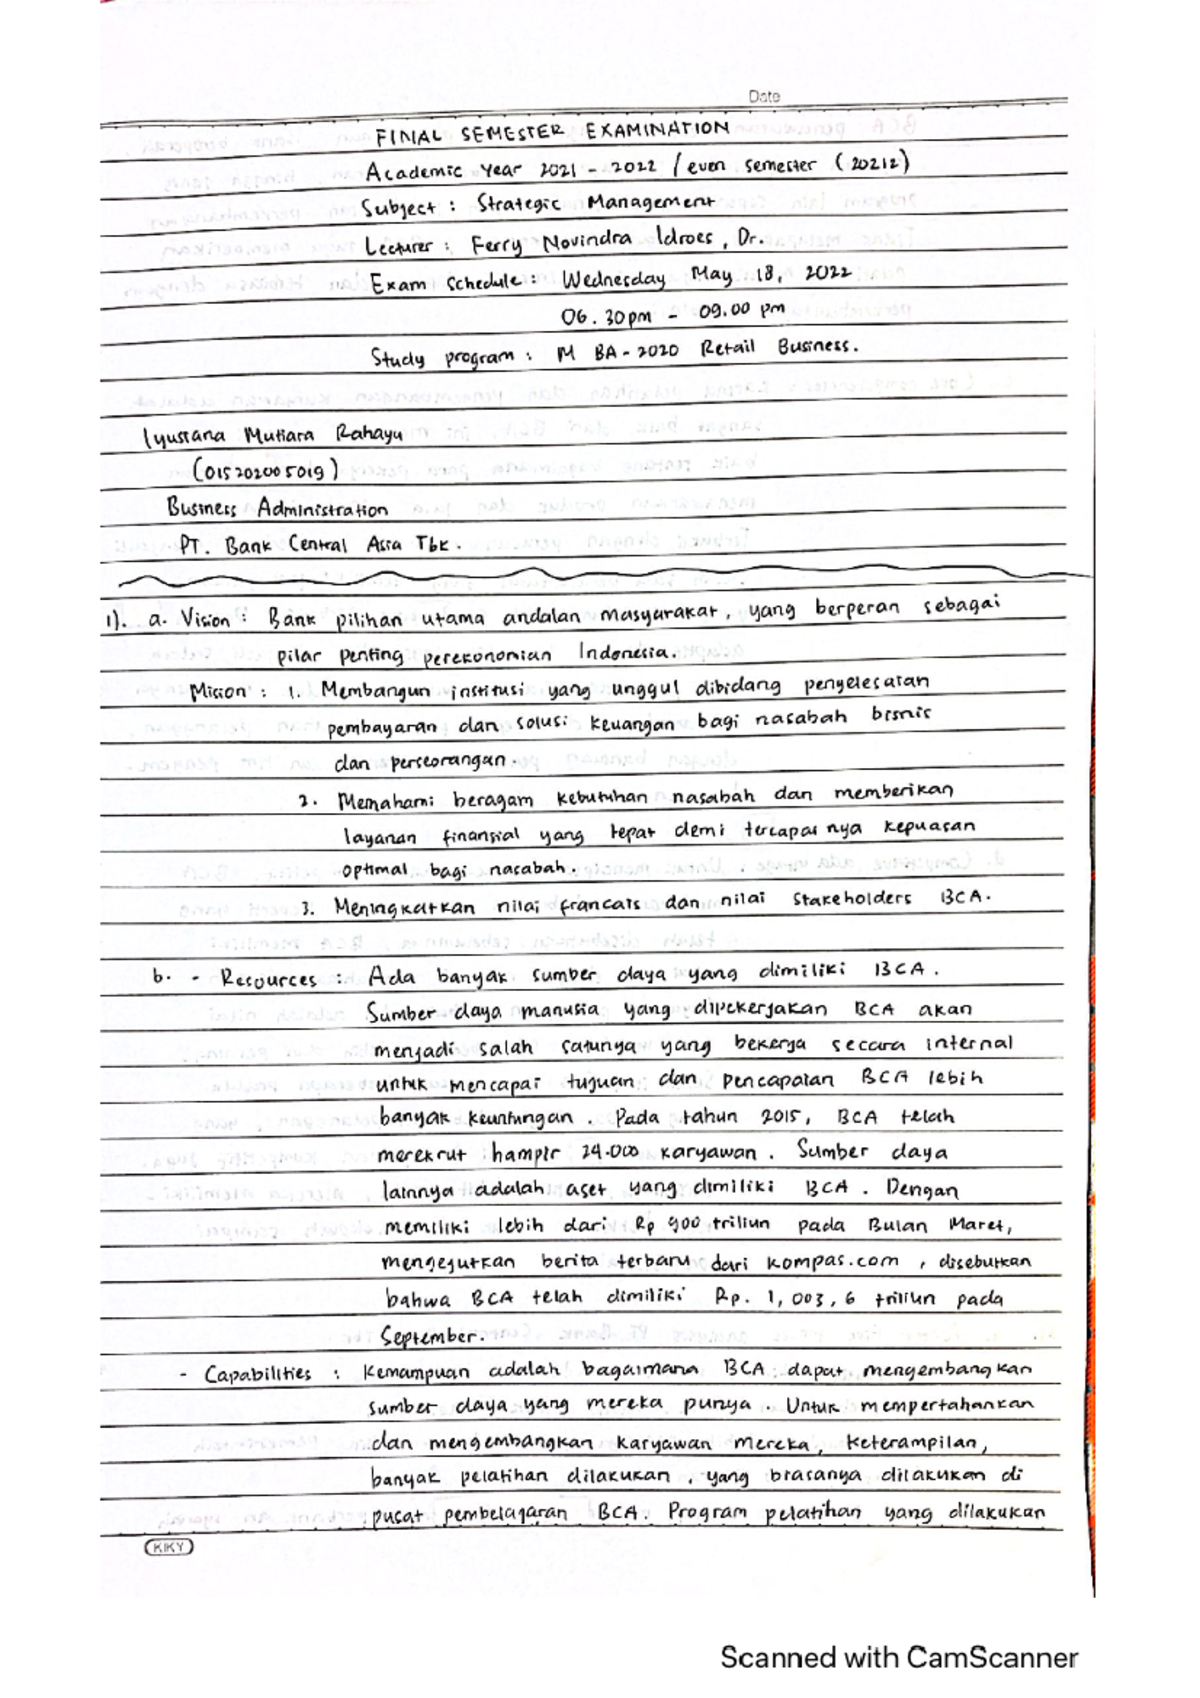 Date
FINAL SEMESTER EXAMINATION
Academic Year 2021 - 2022 / even semester (20212)
Subject : Strategic Management
Lecturer : Ferry Novindra Idroes, Dr.
Exam Schedule : Wednesday May 18, 2022
06.30pm - 09.00 pm
Study program : M BA-2020 Retail Business.
Iyustana Mutiara Rahayu
(015202005019)
Business Administration
PT. Bank Central Asia Tbk.
1). a. Vision : Bank pilihan utama andalan masyarakat, yang berperan sebagai
pilar penting perekonomian Indonesia.
Mission : 1. Membangun institusi yang unggul dibidang penyelesaian
pembayaran dan solusi keuangan bagi nasabah bisnis
dan perseorangan.
2. Memahami beragam kebutuhan nasabah dan memberikan
layanan finansial yang tepat demi tercapainya kepuasan
optimal bagi nasabah.
3. Meningkatkan nilai francais dan nilai Stakeholders BCA.
b. - Resources : Ada banyak sumber daya yang dimiliki BCA.
Sumber daya manusia yang dipekerjakan BCA akan
menjadi salah satunya yang bekerja secara internal
untuk mencapai tujuan dan pencapaian BCA lebih
banyak keuntungan. Pada tahun 2015, BCA telah
merekrut hampir 24.000 karyawan. Sumber daya
lainnya adalah aset yang dimiliki BCA. Dengan
memiliki lebih dari Rp 900 triliun pada Bulan Maret,
mengejutkan berita terbaru dari kompas.com, disebutkan
bahwa BCA telah dimiliki Rp. 1,003,6 triliun pada
September.
- Capabilities : Kemampuan adalah bagaimana BCA dapat mengembangkan
sumber daya yang mereka punya. Untuk mempertahankan
dan mengembangkan karyawan mereka, keterampilan,
banyak pelatihan dilakukan, yang biasanya dilakukan di
pusat pembelajaran BCA. Program pelatihan yang dilakukan
KIKY
Scanned with CamScanner